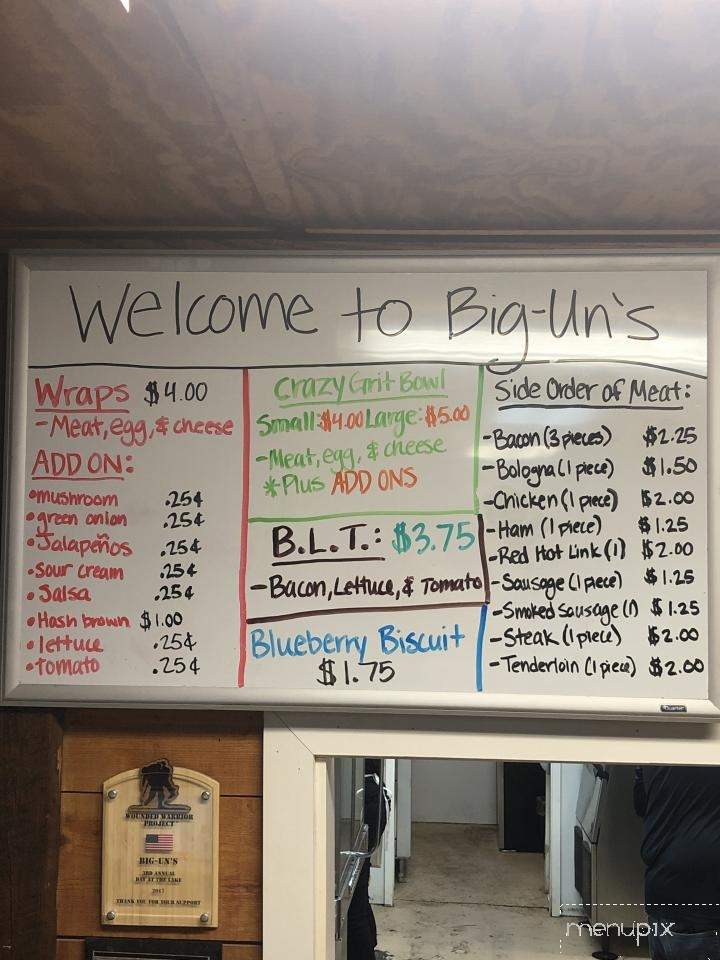 Welcome to Big-Un's
Wraps $4.00
-Meat, egg, & cheese
ADD ON:
•mushroom .25¢
•green onion .25¢
•Jalapeños .25¢
•Sour cream .25¢
•Salsa .25¢
•Hash brown $1.00
•lettuce .25¢
•tomato .25¢
Crazy Grit Bowl
Small:$4.00 Large:$5.00
-Meat, egg, & cheese
*Plus ADD ONS
B.L.T.: $3.75
-Bacon, Lettuce, & Tomato
Blueberry Biscuit
$1.75
Side Order of Meat:
-Bacon (3 pieces) $2.25
-Bologna (1 piece) $1.50
-Chicken (1 piece) $2.00
-Ham (1 piece) $1.25
-Red Hot Link (1) $2.00
-Sausage (1 piece) $1.25
-Smoked sausage (1) $1.25
-Steak (1 piece) $2.00
-Tenderloin (1 piece) $2.00
Quartet
WOUNDED WARRIOR
PROJECT
BIG-UN'S
3RD ANNUAL
DAY AT THE LAKE
2017
THANK YOU FOR YOUR SUPPORT
menupix